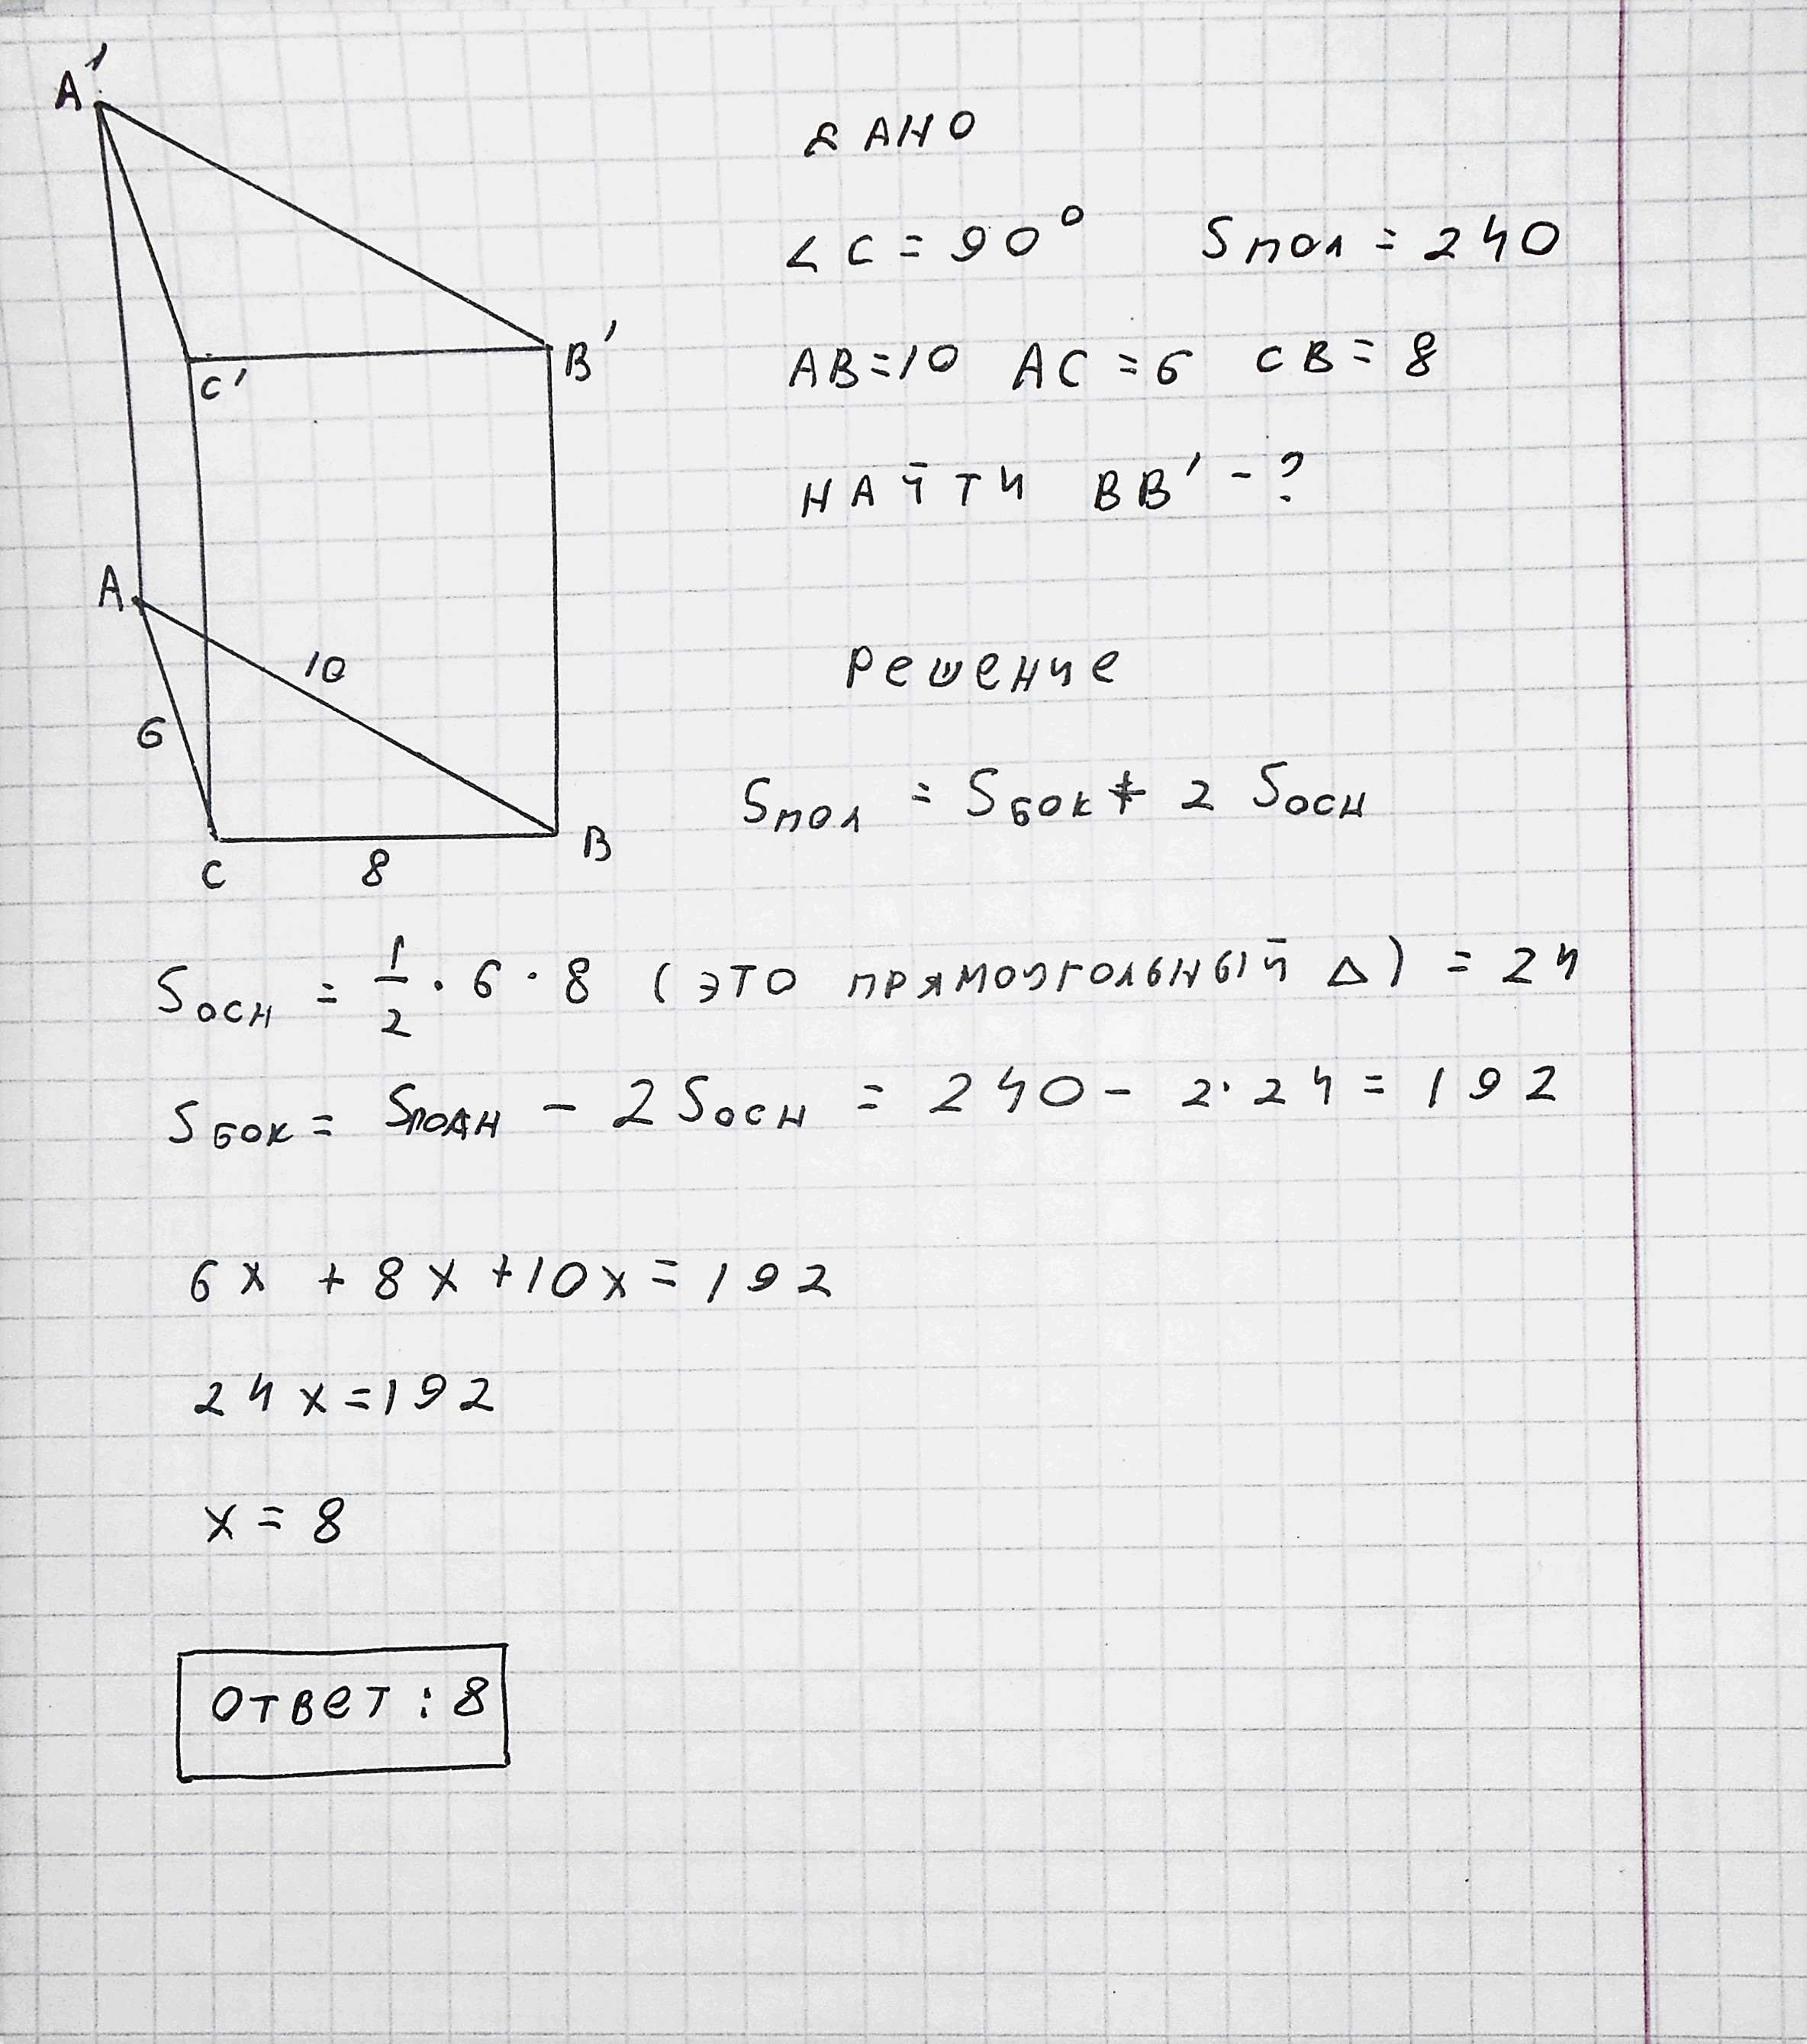 A'
B'
C'
A
10
6
C
8
B
ДАНО
∠C = 90° Sпол = 240
AB=10 AC = 6 CB = 8
НАЙТИ BB' - ?
Решение
Sпол = Sбок + 2 Sосн
Sосн = 1/2 · 6 · 8 (это прямоугольный Δ) = 24
Sбок = Sполн - 2 Sосн = 240 - 2·24 = 192
6x + 8x + 10x = 192
24x = 192
x = 8
Ответ : 8